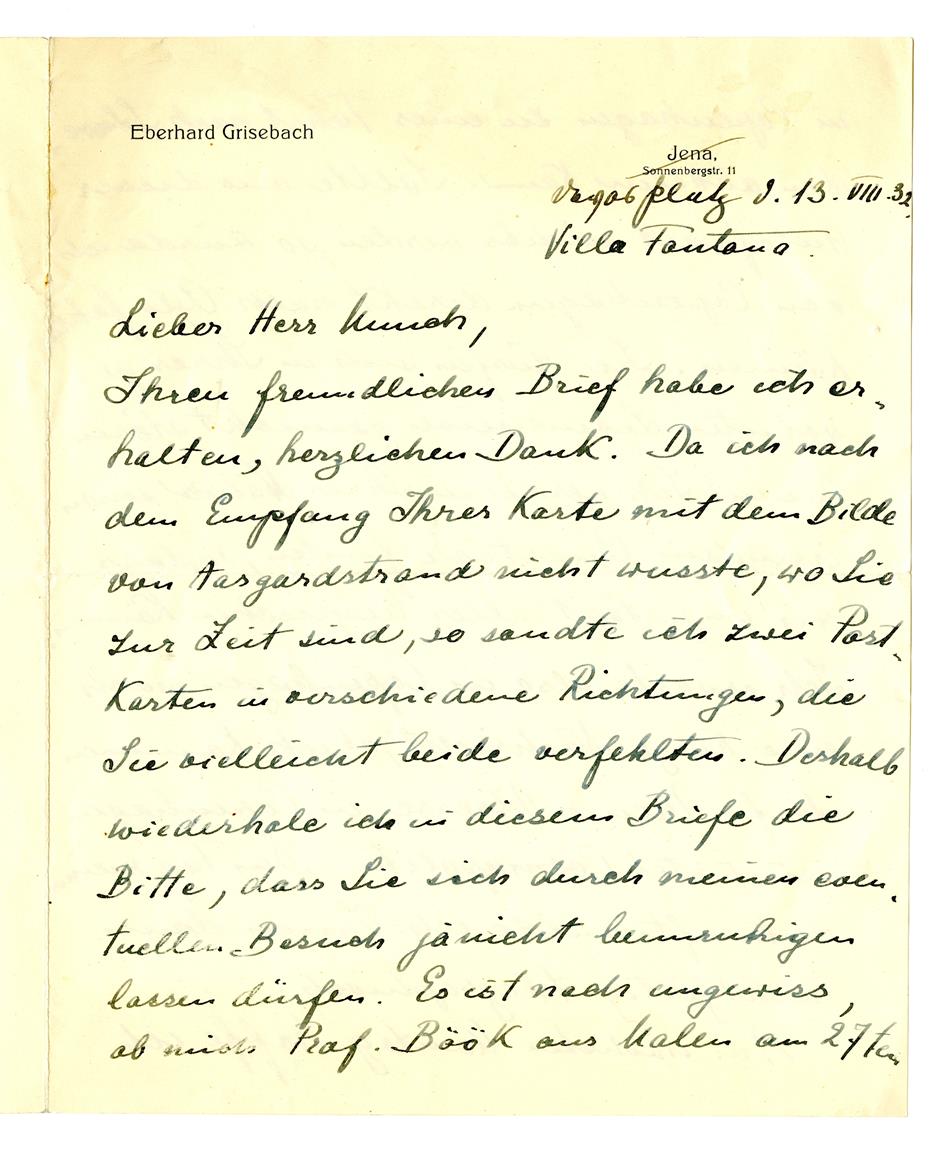 Eberhard Grisebach
Jena,
Sonnenbergstr. 11
Davos platz d. 13. VIII. 32.
Villa Fontana.
Lieber Herr Munch,
Ihren freundlichen Brief habe ich er-
halten, herzlichen Dank. Da ich nach
dem Empfang Ihrer Karte mit dem Bilde
von Aasgardstrand nicht wusste, wo Sie
zur Zeit sind, so sandte ich zwei Post-
Karten in verschiedene Richtungen, die
Sie vielleicht beide verfehlten. Deshalb
wiederhole ich in diesem Briefe die
Bitte, dass Sie sich durch meinen even-
tuellen Besuch ja nicht beunruhigen
lassen dürfen. Es ist noch ungewiss,
ob mich Prof. Böök aus Malen am 27ten